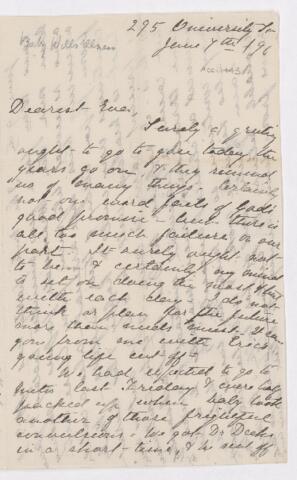 295 University St
June 7th /96
Baby Will's Illness
Dearest Eva,
Surely a greeting
ought to go to you today, the
years go on, & they remind
us of many things - certainly
not one word fails of God's
good promise - but there is
all too much failure on our
part. It surely ought not
to be & certainly my mind
is set on doing the most & best
with each day. I do not
think or plan for the future
more than
gone from one with Eric's
young life cut off -
We had expected to go to
last Friday & were half
packed up when baby took
another of those frightful
convulsions. We got Dr
in a short time, & he sent off